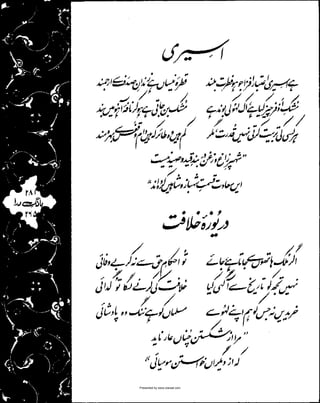 اسیری
ہے اسیری اعتبار افزا جو ہو فطرت بلند
قطرۂ نیساں ہے زندانِ صدف سے ارجمند
مشکِ اذفر چیز کیا ہے، اک لہو کی بوند ہے
مشک بن جاتی ہے ہو کر نافۂ آہو میں بند
ہر کسی کی تربیت کرتی نہیں قدرت، مگر
کم ہیں وہ طائر کہ ہیں دام و قفس سے بہرہ مند
"شہپرِ زاغ و زغن در بندِ قید و صید نیست
ایں سعادت قسمتِ شہباز و شاہیں کردہ اند"
۲۸۱
بانگِ درا
۲۶۵
دریوزۂ خلافت
اگر ملک ہاتھوں سے جاتا ہے، جائے
تو احکامِ حق سے نہ کر بے وفائی
نہیں تجھ کو تاریخ سے آگہی کیا
خلافت کی کرنے لگا تو گدائی
خریدیں نہ جس کو ہم اپنے لہو سے
مسلماں کو ہے ننگ وہ پادشائی
"مرا از شکستن چناں عار ناید
کہ از دیگراں خواستن مومیائی"
Presented by www.ziaraat.com